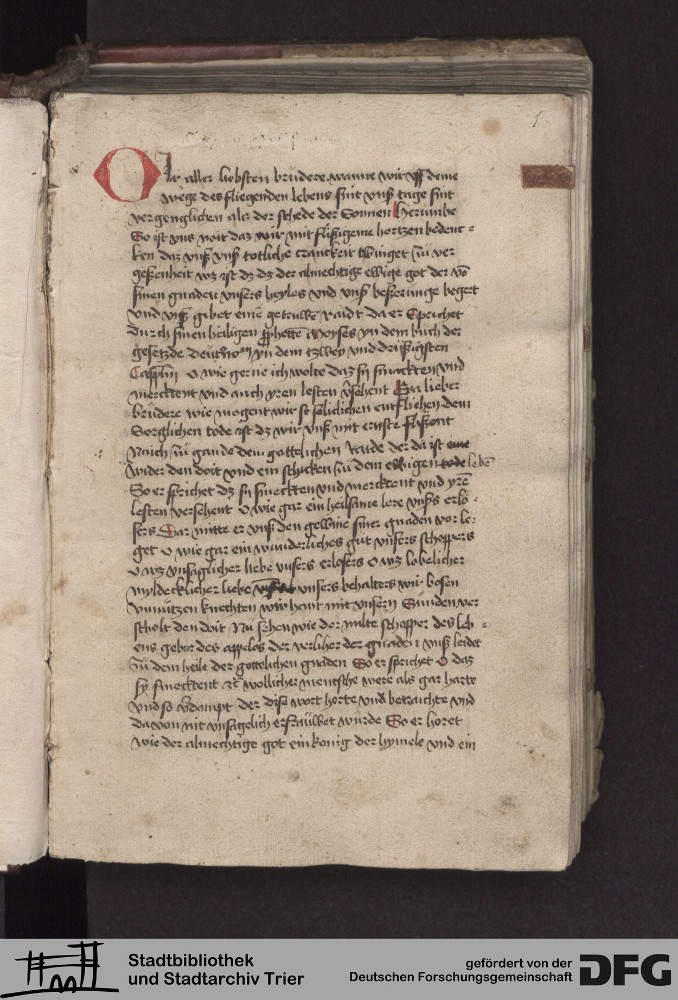 1
O Ir aller liebsten brudere wanne wir vff deme
wege des fliegenden lebens sint vnß tage sint
vergenglichen als der schede der Sonnen Herumbe
So ist vns noit daz wir mit flißigeme hertzen bedenc-
ken daz vnß vnß totliche cranckeit twinget zu ver
geßenheit wz ist dz dz der almechtige ewige got der vo
sinen gnaden vnsers heyles vnd vnß beßerunge begert
vnd vnß gibet eine getruwe raidt da er Sprichet
durch sinen heiligen ppheten Moyses yn dem buch der
gesetzde deutro yn dem tzwey vnd drißigsten
Capplin O wie gerne ich wolte daz sy smackten vnd
mercktent vnd auch yren lesten v'sehent Eya lieber
brudere wie mogent wir so selidichen entfliehen dem
Sorglichen tode ist dz wir vnß mit ernste flißent
Noich zu gande dem gottelichen Rade der da ist
wider den doit vnd ein schicken zu dem ewigen lebe
So er sprichet dz sy smeckten vnd mercktent vnd yre
lesten versehent O wie gar ein heilsame lere vnßs erlo-
sers Dar mitte er vnß den gewine siner gnaden vor le-
get O wie gar ein wunderliches gut vnsers scheppers
O wz vnsaglicher liebe vnsers erlosers O wz lobelicher
myldecklicher liebe vnsers behalters wir bosen
vnnutzen knechten wir hent mit vnsern Sunden ver
scholt den doit Nu sehen wie der milte schepper des leb-
ens geber des appelas der verliher der gnaden vnß leidet
zu dem heile der gottelichen gnaden So er sprichet O daz
sy smecktent etc wollicher mentsche were als gar harte
vnd so v'dampt der dise wort horte vnd betrachte vnd
da von nit vnsagelich erstauwet wurde So er horet
wie der almechtige got ein konig der hymele vnd ein
Stadtbibliothek
und Stadtarchiv Trier
gefördert von der
Deutschen Forschungsgemeinschaft
DFG